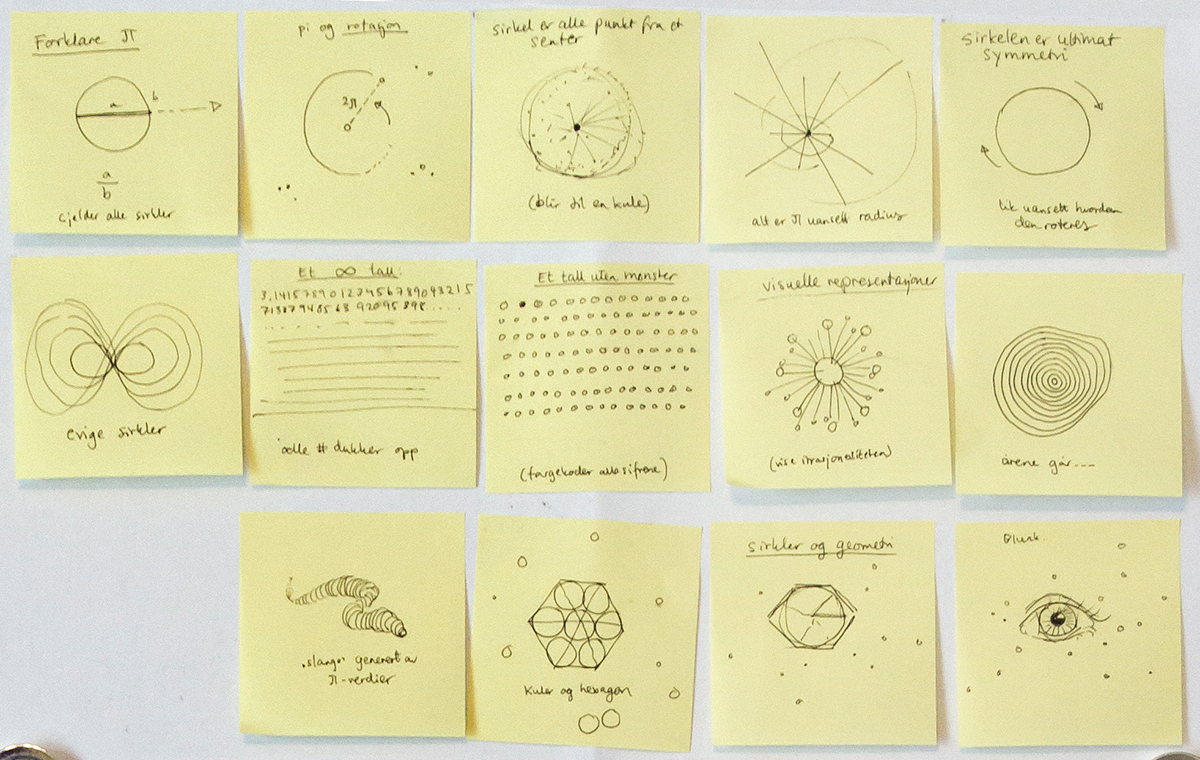 Forklare π
a
b
a
b
Gjelder alle sirkler
pi og rotasjon
2π
sirkel er alle punkt fra et
senter
(blir til en kule)
alt er π uansett radius
Sirkelen er ultimat
symmetri
lik uansett hvordan
den roteres
evige sirkler
Et ∞ tall.
alle # dukker opp
Et tall uten mønster
(fargekoder alle sifrene)
visuelle representasjoner
(vise irrasjonaliteten)
årene går---
"slange" generert av
π-verdier
Kuler og hexagon
Sirkler og geometri
Blunk.